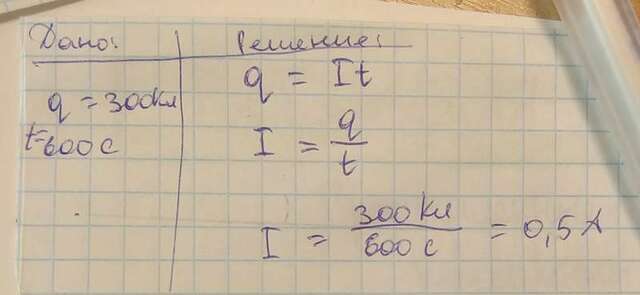 Дано:
q = 300Кл
t=600 с
Решение:
q = It
I = q/t
I = 300 Кл/600 с = 0,5 А